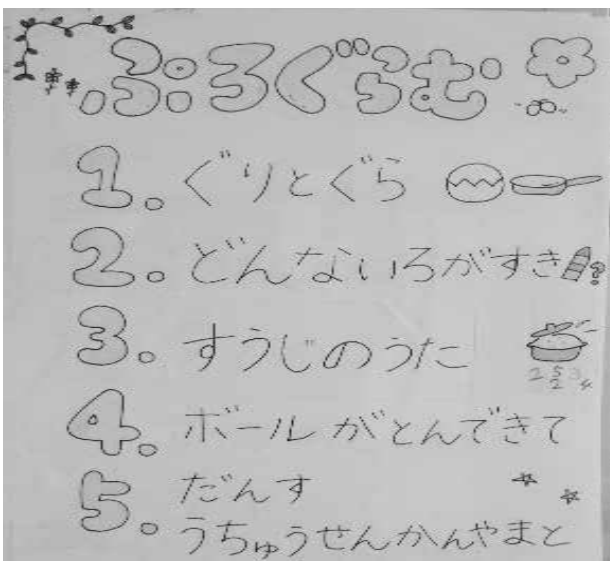 ぷろぐらむ
1。ぐりとぐら
2。どんないろがすき?
3。すうじのうた
2 5 3 4
2
4。ボールがとんできて
5。だんす
うちゅうせんかんやまと